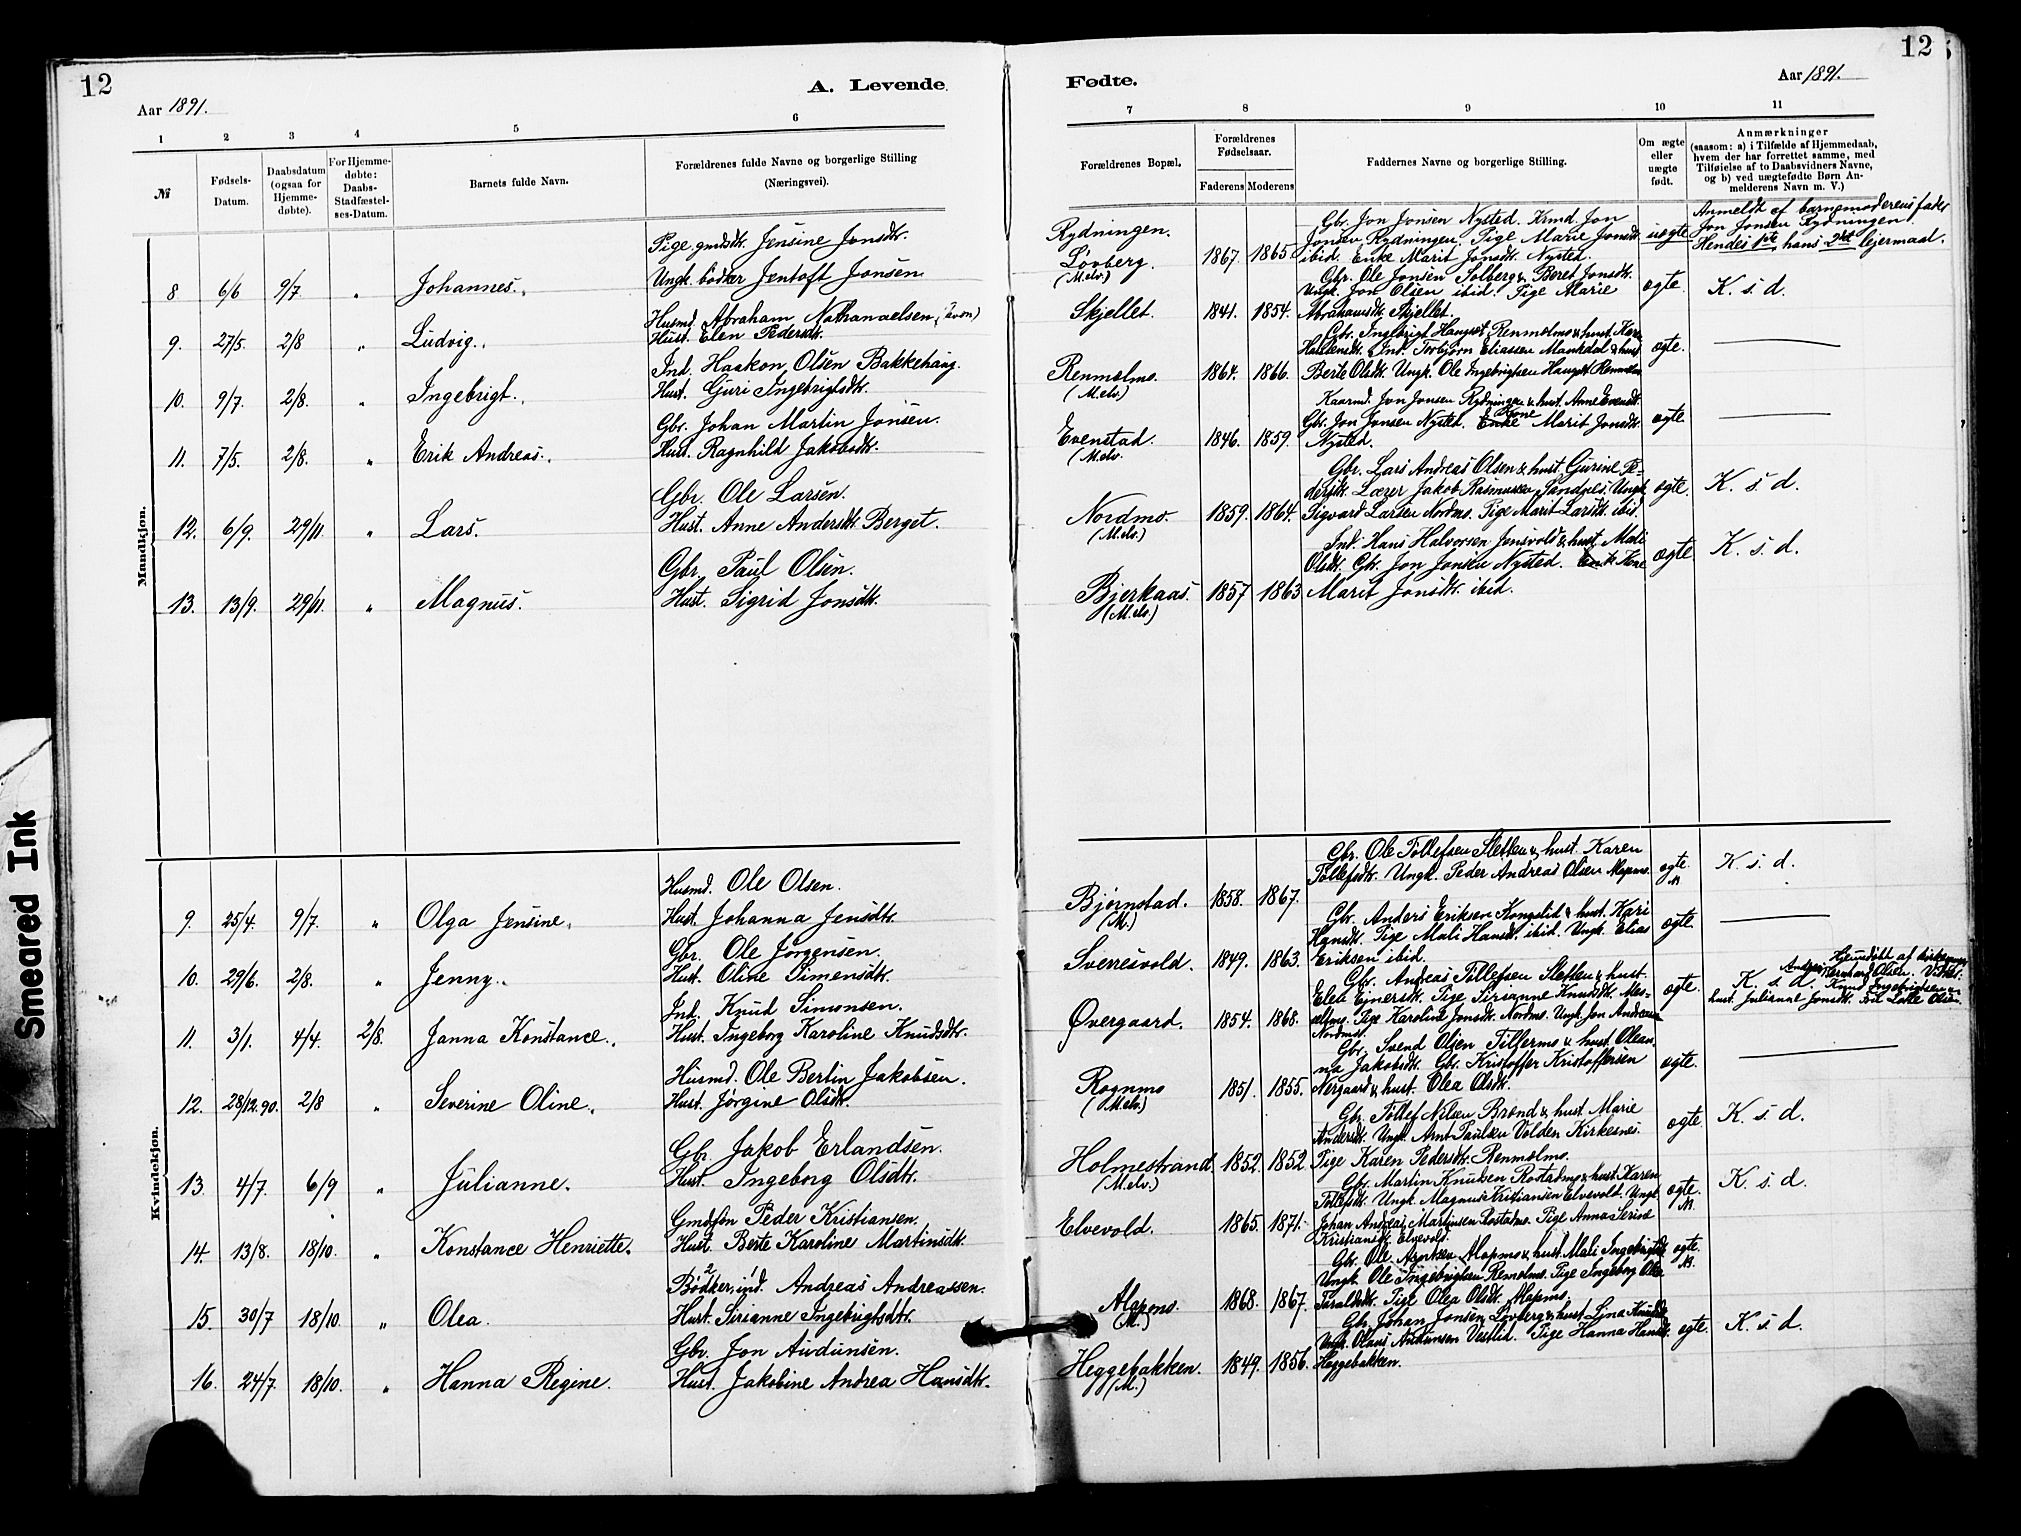 12
A. Levende
Aar 1891.
1 2 3 4 5 6
№
Fødsels-Datum.
Daabsdatum (ogsaa for Hjemmedøbte).
For Hjemmedøbte: Daabs-Stadfæstelses-Datum.
Barnets fulde Navn.
Forældrenes fulde Navne og borgerlige Stilling (Næringsvei).
Mandkjøn.
Pige gmdsdtr. Jensine Jonsdtr.
8 6/6 9/7 " Johannes. Ungk. bødker Jentoft Jonsen
Husmd. Abraham Nathanaelsen
9. 27/5. 2/8 " Ludvig. Hust. Elen Pedersdtr.
Ind. Haakon Olsen Bakkehaug.
10. 9/7. 2/8. " Ingebrigt. Hust. Guri Ingebrigtsdtr.
Gbr. Johan Martin Jonsen.
11. 7/5. 2/8. " Erik Andreas. Hust. Ragnhild Jakobsdtr.
Gbr. Ole Larsen.
12. 6/9. 29/11. " Lars. Hust. Anne Andersdtr. Berget.
Gbr. Paul Olsen.
13. 13/9. 29/11. " Magnus. Hust. Sigrid Jonsdtr.
Kvindekjøn.
Husmd. Ole Olsen.
9. 25/4. 9/7. " Olga Jensine. Hust. Johanna Jensdtr.
Gbr. Ole Jørgensen.
10. 29/6. 2/8. " Jenny. Hust. Oline Simensdtr.
Ind. Knud Simonsen.
11. 3/1. 4/4. 2/8. Janna Konstance. Hust. Ingeborg Karoline Knudsdtr.
Husmd. Ole Bertin Jakobsen.
12. 28/12.90. 2/8 " Severine Oline. Hust. Jørgine Olsdtr.
Gbr. Jakob Erlandsen.
13. 4/7. 6/9 " Julianne. Hust. Ingeborg Olsdtr.
Gmdsøn Peder Kristiansen.
14. 13/8. 18/10. " Konstance Henriette. Hust. Berte Karoline Martinsdtr.
Bødker, ind. Andreas Andreassen.
15. 30/7 18/10. " Olea. Hust. Sirianne Ingebrigtsdtr.
Gbr. Jon Audunsen.
16. 24/7. 18/10. " Hanna Regine. Hust. Jakobine Andrea Hansdtr.
12
Fødte.
Aar 1891.
7 8 9 10 11
Forældrenes Bopæl.
Forældrenes Fødselsaar.
Faderens Moderens
Faddernes Navne og borgerlige Stilling.
Om ægte eller uægte født.
Anmærkninger
(saasom: a) i Tilfælde af Hjemmedaab,
hvem der har forrettet samme, med
Tilføielse af to Daabsvidners Navne,
og b) ved uægtefødte Børn Anmelderens Navn m. V.)
Rydningen. Gbr. Jon Jonsen Nysted. Jon
Jonsen Rydningen. Pige Marie Jonsdtr. uægte Anmeldt af barnemoderens fader
Løvberg. (M.elv.) 1867. 1865. ibid. Enke Marit Jonsdtr. Nysted. Jon Jonsen Rydningen
Hendes 1ste hans 2det lejermaal.
Gbr. Ole Jonsen Solberg & Beret Jonsdtr.
Ungk. Jon Olsen ibid. Pige Marie ægte. K. s. d.
Skjellet. 1841. 1854. Abrahamsdtr. Skjellet.
Gbr. Ingebrigt Hanset Renmolmo & hust. Kari
Haldensdtr. Ind. Torbjørn Eliassen Maukdal & hust. ægte.
Renmolmo. (M.elv.) 1864. 1866. Berte Olsdtr. Ungk. Ole Ingebrigtsen
Jon Jonsen Rydningen & hust. Anne Evensdtr.
Gbr. Jon Jonsen Nysted. Enke Kone Marit Jonsdtr. ægte.
Evenstad. (M.elv. 1846. 1859. Nysted.
Gbr. Lars Andreas Olsen & hust. Gurine Pedersdtr.
Lærer Jakob Rasmussen Sandnes. Ungk. ægte. K. s. d.
Nordmo. (M.elv.) 1859. 1864. Sigvard Larsen Nordmo. Pige Marit Larsdtr. ibid.
Ind. Hans Halvorsen Jensvold & hust. Mali
Olsdtr. Gbr. Jon Jonsen Nysted. Enke Kone ægte K. s. d.
Bjerkaas. (M.elv.) 1857 1863 Marit Jonsdtr. ibid.
Gbr. Ole Tollefsen Sletten & hust. Karen
Tollefsdtr. Ungk. Peder Andreas Olsen Alapmo. ægte. K. s. d.
Bjørnstad. (M.) 1858. 1867.
Gbr. Anders Eriksen Kongslid & hust. Kari
Hansdtr. Pige Mali Hansdtr. ibid. Ungk. Elias ægte.
Sverresvold. 1849. 1863. Eriksen ibid.
Gbr. Andreas Tollefsen Sletten & hust.
Elen Ejnersdtr. Pige Sirianne Knudsdtr. ægte K. s. d. Hjemdøbt af
Bernhard Olsen. Knud Ingebrigtsen
hust. Julianne Jonsdtr.
Øvergaard. 1854. 1868. Pige Karoline Jonsdtr. Nordmo. Ungk. Jon Andreas
Nordmo.
Gbr. Svend Olsen Tillermo & hust. Oleanna
Jakobsdtr. Gbr. Kristoffer Kristoffersen ægte.
Rognmo (M.elv.) 1851. 1855. Nergaard & hust. Olea Olsdtr.
Gbr. Tollef Nilsen Brønd & hust. Marie
Andersdtr. Ungk. Arnt Paulsen Volden Kirkesnes. ægte K. s. d.
Holmestrand (M.elv.) 1852. 1852. Pige Karen Pedersdtr. Renmolmo.
Gbr. Martin Knudsen Rostadmo & hust. Karen
Tollefsdtr. Ungk. Magnus Kristiansen Elvevold. Ungk. ægte. K. s. d.
Elvevold. 1865. 1871. Johan Andreas Martinsen Rostadmo. Pige Anna Serine
Kristiansdtr. Elvevold.
Gbr. Ole Arntsen Alapmo & hust. Mali Ingebrigtsdtr. ægte.
Ungk. Ole Ingebrigtsen Renmolmo. Pige Ingeborg Olea
Alapmo. (M.) 1868. 1867. Taraldsdtr. Pige Olea Olsdtr. Alapmo.
Gbr. Johan Jonsen Løvberg & hust. Lina
Ungk. Olaus Audunsen Vestlid. Pige Hanna Hansdtr. ægte. K. s. d.
Heggebakken. (M.) 1849. 1856. Heggebakken.
Smeared Ink